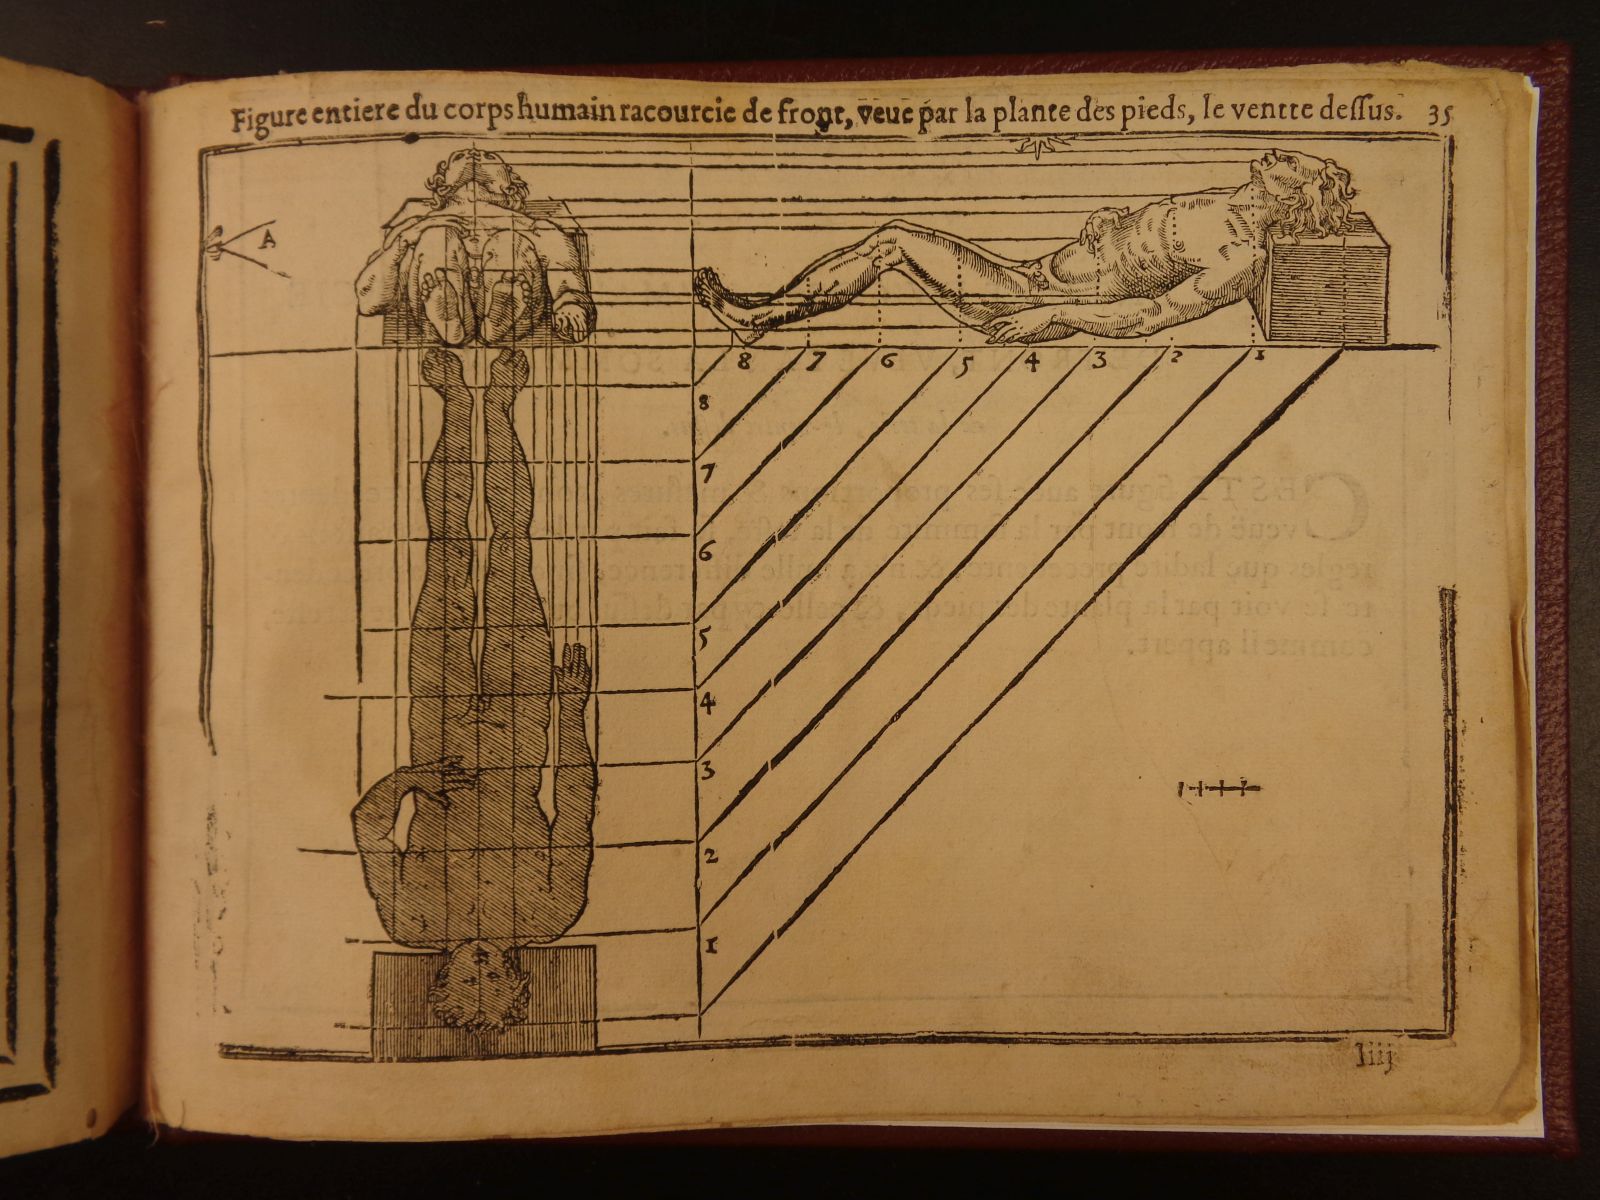 Figure entiere du corps humain racourcie de front, veuë par la plante des pieds, le ventte dessus. 35
A
8 7 6 5 4 3 2 1
8
7
6
5
4
3
2
1
Iiij